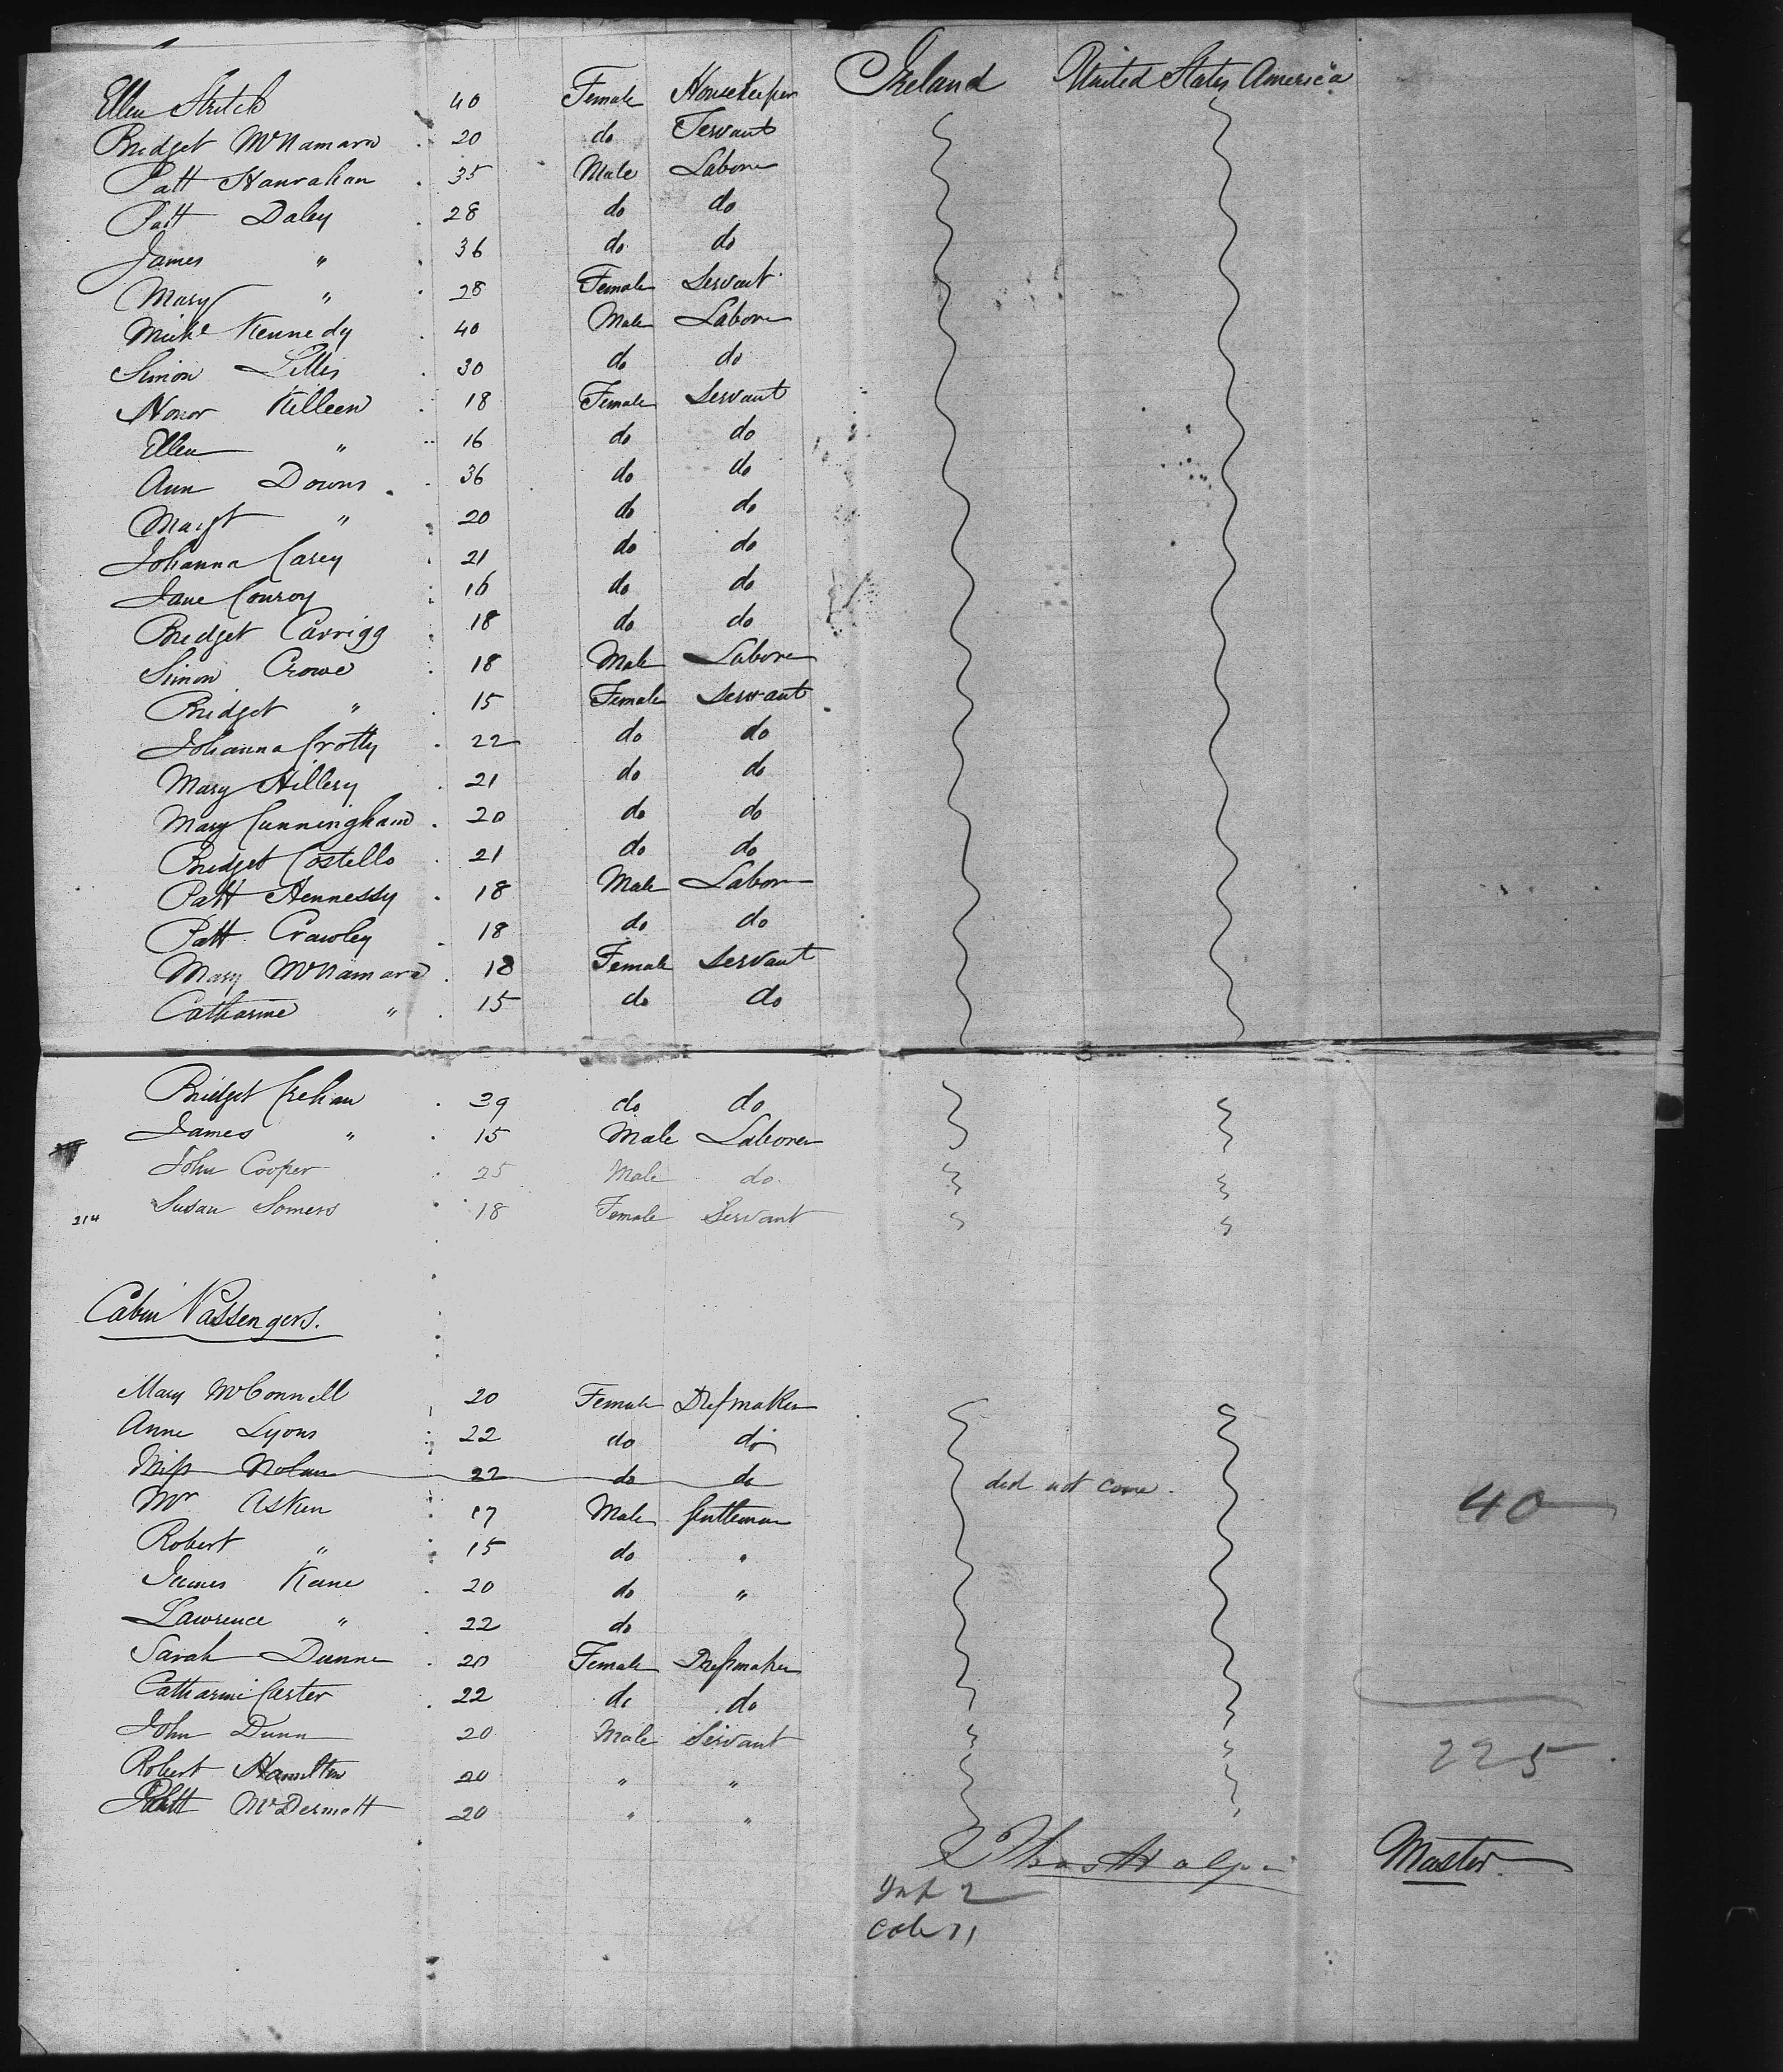 Ellen Stritch 40 Female Housekeeper Ireland United States America
Bridget McNamara 20 do Servant
Patt Hanrahan 35 Male Labore
Patt Daley 28 do do
James " 36 do do
Mary " 28 Female Servant
Michl Kennedy 40 Male Labore
Simon Lillis 30 do do
Honor Killeen 18 Female Servant
Ellen " 16 do do
Ann Downs 36 do do
Margt " 20 do do
Johanna Carey 21 do do
Jane Conroy 16 do do
Bridget Carrigg 18 do do
Simon Crowe 18 Male Labore
Bridget " 15 Female Servant
Johanna Crotty 22 do do
Mary Hillery 21 do do
Mary Cunningham 20 do do
Bridget Costello 21 do do
Patt Hennessy 18 Male Labor
Patt Crawley 18 do do
Mary McNamara 18 Female Servant
Catharine " 15 do do
Bridget Crehan 39 do do
James " 15 Male Laborer
John Cooper 25 Male do
214 Susan Somers 18 Female Servant
Cabin Passengers.
Mary McConnell 20 Female Dressmaker
Anne Lyons 22 do do
Miss Nolan 22 do do did not come.
Mr Asken 17 Male Gentleman 40
Robert " 15 do "
James Kane 20 do "
Lawrence " 22 do
Sarah Dunne 20 Female Dressmaker
Catharine Carter 22 do do
John Dunn 20 Male Servant
Robert Hamilton 20 " " 225
Patt McDermott 20 " "
Thos Halpin Master
Inf 2
Cab 11